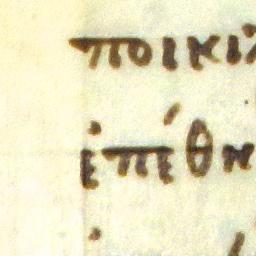 ποικι
ἐπέθη